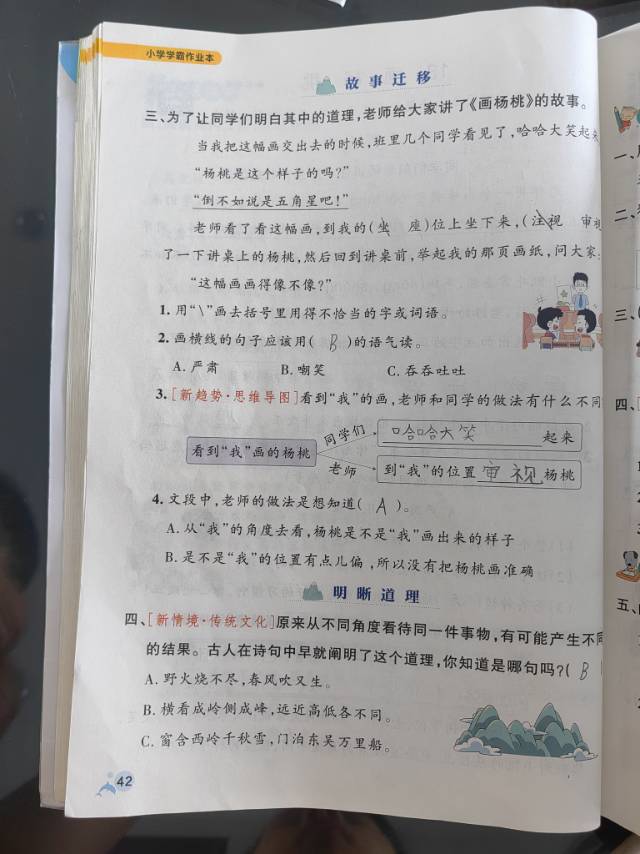 小学学霸作业本
故事迁移
三、为了让同学们明白其中的道理,老师给大家讲了《画杨桃》的故事。
当我把这幅画交出去的时候,班里几个同学看见了,哈哈大笑起来
“杨桃是这个样子的吗?”
“倒不如说是五角星吧!”
老师看了看这幅画,到我的(坐 座)位上坐下来,(注视 审视
了一下讲桌上的杨桃,然后回到讲桌前,举起我的那页画纸,问大家:
“这幅画画得像不像?”
1. 用“\”画去括号里用得不恰当的字或词语。
2. 画横线的句子应该用( B )的语气读。
A. 严肃 B. 嘲笑 C. 吞吞吐吐
3. [新趋势·思维导图]看到“我”的画,老师和同学的做法有什么不同
同学们 哈哈大笑 起来
看到“我”画的杨桃
老师 到“我”的位置审视杨桃
4. 文段中,老师的做法是想知道( A )。
A. 从“我”的角度去看,杨桃是不是“我”画出来的样子
B. 是不是“我”的位置有点儿偏,所以没有把杨桃画准确
明晰道理
四、[新情境·传统文化]原来从不同角度看待同一件事物,有可能产生不同
的结果。古人在诗句中早就阐明了这个道理,你知道是哪句吗?( B
A. 野火烧不尽,春风吹又生。
B. 横看成岭侧成峰,远近高低各不同。
C. 窗含西岭千秋雪,门泊东吴万里船。
42
一、
二、
三、
四、
五、